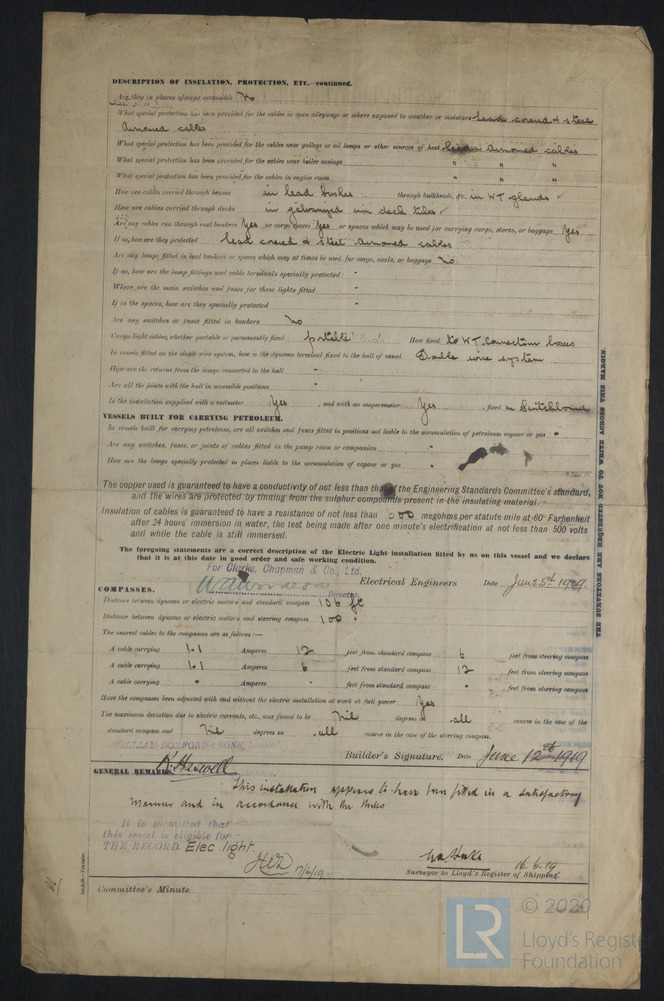 DESCRIPTION OF INSULATION, PROTECTION, ETC.—continued.
Are they in places always accessible No
What special protection has been provided for the cables in open alleyways or where exposed to weather or moisture lead covered & steel
Armoured cables
What special protection has been provided for the cables near galleys or oil lamps or other sources of heat Armoured cables
What special protection has been provided for the cables near boiler casings " " "
What special protection has been provided for the cables in engine room " " "
How are cables carried through beams in lead bushes through bulkheads, &c. in WT glands
How are cables carried through decks in galvanized iron deck tubes
Are any cables run through coal bunkers Yes or cargo spaces Yes or spaces which may be used for carrying cargo, stores, or baggage Yes
If so, how are they protected Lead covered & steel Armoured cables
Are any lamps fitted in coal bunkers or spaces which may at times be used for cargo, coals, or baggage No
If so, how are the lamp fittings and cable terminals specially protected "
Where are the main switches and fuses for these lights fitted "
If in the spaces, how are they specially protected "
Are any switches or fuses fitted in bunkers No
Cargo light cables, whether portable or permanently fixed portable How fixed to WT Connection boxes
In vessels fitted on the single wire system, how is the dynamo terminal fixed to the hull of vessel Double wire system
How are the returns from the lamps connected to the hull "
Are all the joints with the hull in accessible positions "
Is the installation supplied with a voltmeter Yes , and with an amperemeter Yes , fixed on Switchboard
VESSELS BUILT FOR CARRYING PETROLEUM.
In vessels built for carrying petroleum, are all switches and fuses fitted in positions not liable to the accumulation of petroleum vapour or gas "
Are any switches, fuses, or joints of cables fitted in the pump room or companion "
How are the lamps specially protected in places liable to the accumulation of vapour or gas "
The copper used is guaranteed to have a conductivity of not less than that of the Engineering Standards Committee's standard,
and the wires are protected by tinning from the sulphur compounds present in the insulating material.
Insulation of cables is guaranteed to have a resistance of not less than 600 megohms per statute mile at 60° Farhenheit
after 24 hours' immersion in water, the test being made after one minute's electrification at not less than 500 volts
and while the cable is still immersed.
The foregoing statements are a correct description of the Electric Light installation fitted by us on this vessel and we declare
that it is at this date in good order and safe working condition.
For Clarke, Chapman & Co., Ltd.
Director. Electrical Engineers Date June 5th 1919
COMPASSES.
Distance between dynamo or electric motors and standard compass 106 ft
Distance between dynamo or electric motors and steering compass 100 "
The nearest cables to the compasses are as follows:—
A cable carrying 1.1 Amperes 12 feet from standard compass 6 feet from steering compass
A cable carrying 1.1 Amperes 6 feet from standard compass 12 feet from steering compass
A cable carrying " Amperes " feet from standard compass " feet from steering compass
Have the compasses been adjusted with and without the electric installation at work at full power Yes
The maximum deviation due to electric currents, etc., was found to be Nil degrees on all course in the case of the
standard compass and Nil degrees on all course in the case of the steering compass.
WILLIAM DOXFORD & SONS, Limited.
R. Haswell Builder's Signature. Date June 12th 1919
GENERAL REMARKS.
This installation appears to have been fitted in a satisfactory
manner and in accordance with the Rules
It is submitted that
this vessel is eligible for
THE RECORD. Elec. light
17/6/19
16.6.19
Surveyor to Lloyd's Register of Shipping.
Committee's Minute
THE SURVEYORS ARE REQUESTED NOT TO WRITE ACROSS THIS MARGIN.
LR
© 2020
Lloyd's Register
Foundation